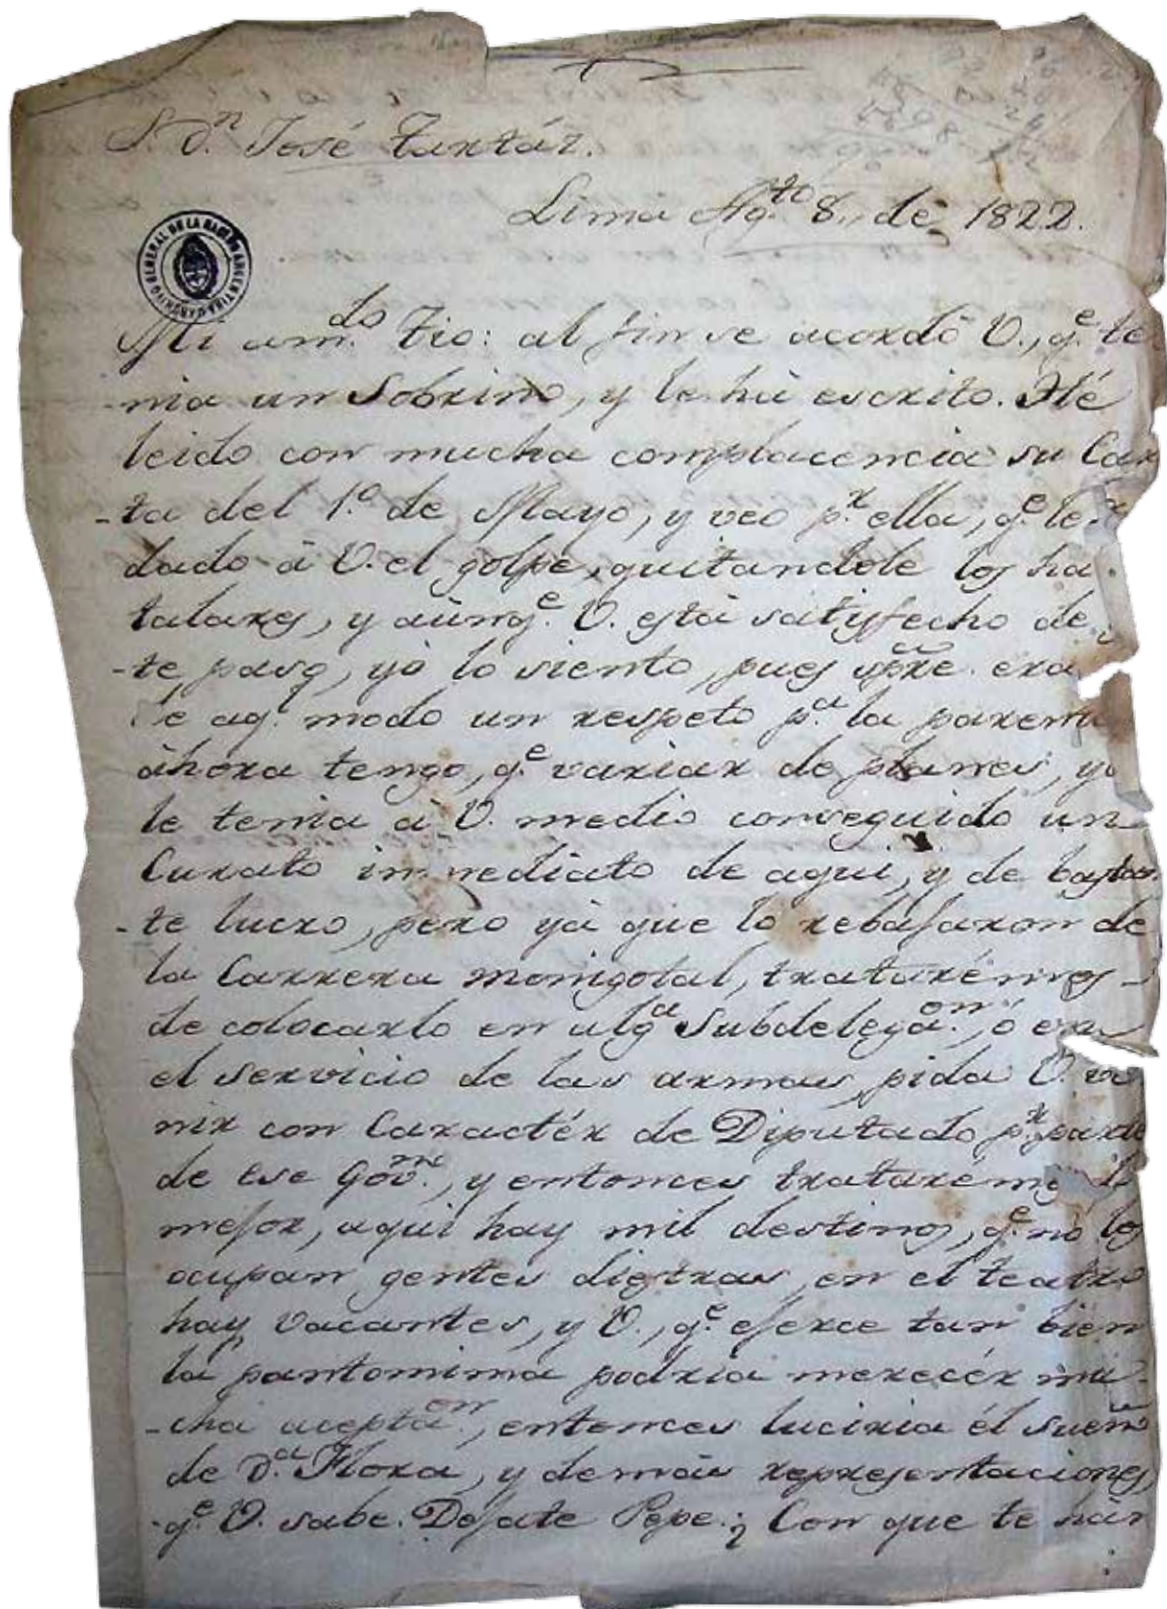 S. D.n José Tartáz.
Lima Ag.to 8,, de 1822.
ARCHIVO GENERAL DE LA NACION ARGENTINA
Mi am.do Tio: al fin se acordó V., q.e te
nia un Sobrino, y le há escrito. Hé
leido con mucha complacencia su Car
-ta del 1.o de Mayo, y veo p.r ella, q.e le
dado á V. el golpe, quitandole los ha
talares, y aúnq.e V. está satisfecho de
-te paso, yó lo siento, pues spre. era
de aq.l modo un respeto p.a la parent
áhora tengo, q.e variar de planes, yo
le tenia á V. medio conseguido un
Curato inmediato de aqui, y de bastan
-te lucro, pero yá que lo rebajaron de
la Carrera monigotal, tratarémos
de colocarlo en alg.a Subdelega.on, ó en
el servicio de las armas, pida V. ve
nir con Caractér de Diputado p.r parte
de ese Gov.no, y entonces tratarémos lo
mejor, aqui hay mil destinos, q.e no los
ocupan gentes diestras, en el teatro
hay vacantes, y V., q.e ejerce tan bien
la pantomima podria merecér mu
-cha acepta.on, entonces luciria él sueño
de D.a Flora, y demás representaciones
q.e V. sabe. Dejate Pepe. ¿Con que te hán